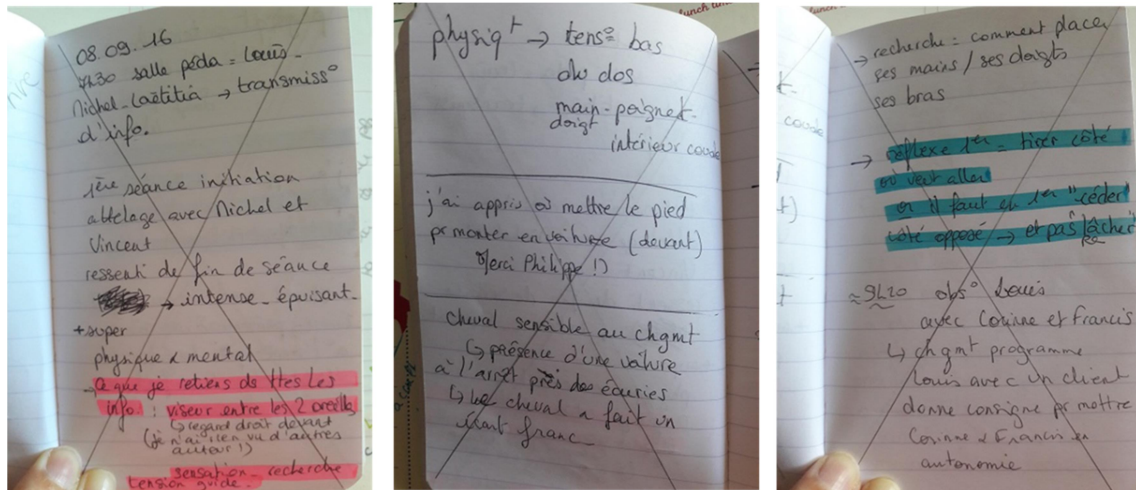 08.09.16
7h30 salle péda = Louis -
Michel - Laëtitia → transmiss°
d'info.
1ère séance initiation
attelage avec Michel et
Vincent
ressenti de fin de séance
→ intense - épuisant -
+ super
physique & mental
→ ce que je retiens ds ttes les
info : viseur entre les 2 oreilles
↳ regard droit devant
(je n'ai rien vu d'autres
autour !)
sensation - recherche
tension guide.
physiq^t → tens° bas
du dos
main - poignet -
doigt
intérieur coude
j'ai appris où mettre le pied
pr monter en voiture (devant)
Merci Philippe !)
cheval sensible au chgmt
↳ présence d'une voiture
à l'arrêt près des écuries
↳ le cheval a fait un
écart franc -
→ recherche = comment placer
ses mains / ses doigts
ses bras
→ réflexe 1er = tirer côté
où veut aller
or il faut en 1er "céder"
côté opposé → et pas lâcher
≈ 9h20 obs° Louis
avec Corinne et Francis
↳ chgmt programme
Louis avec un client
donne consigne pr mettre
Corinne & Francis en
autonomie